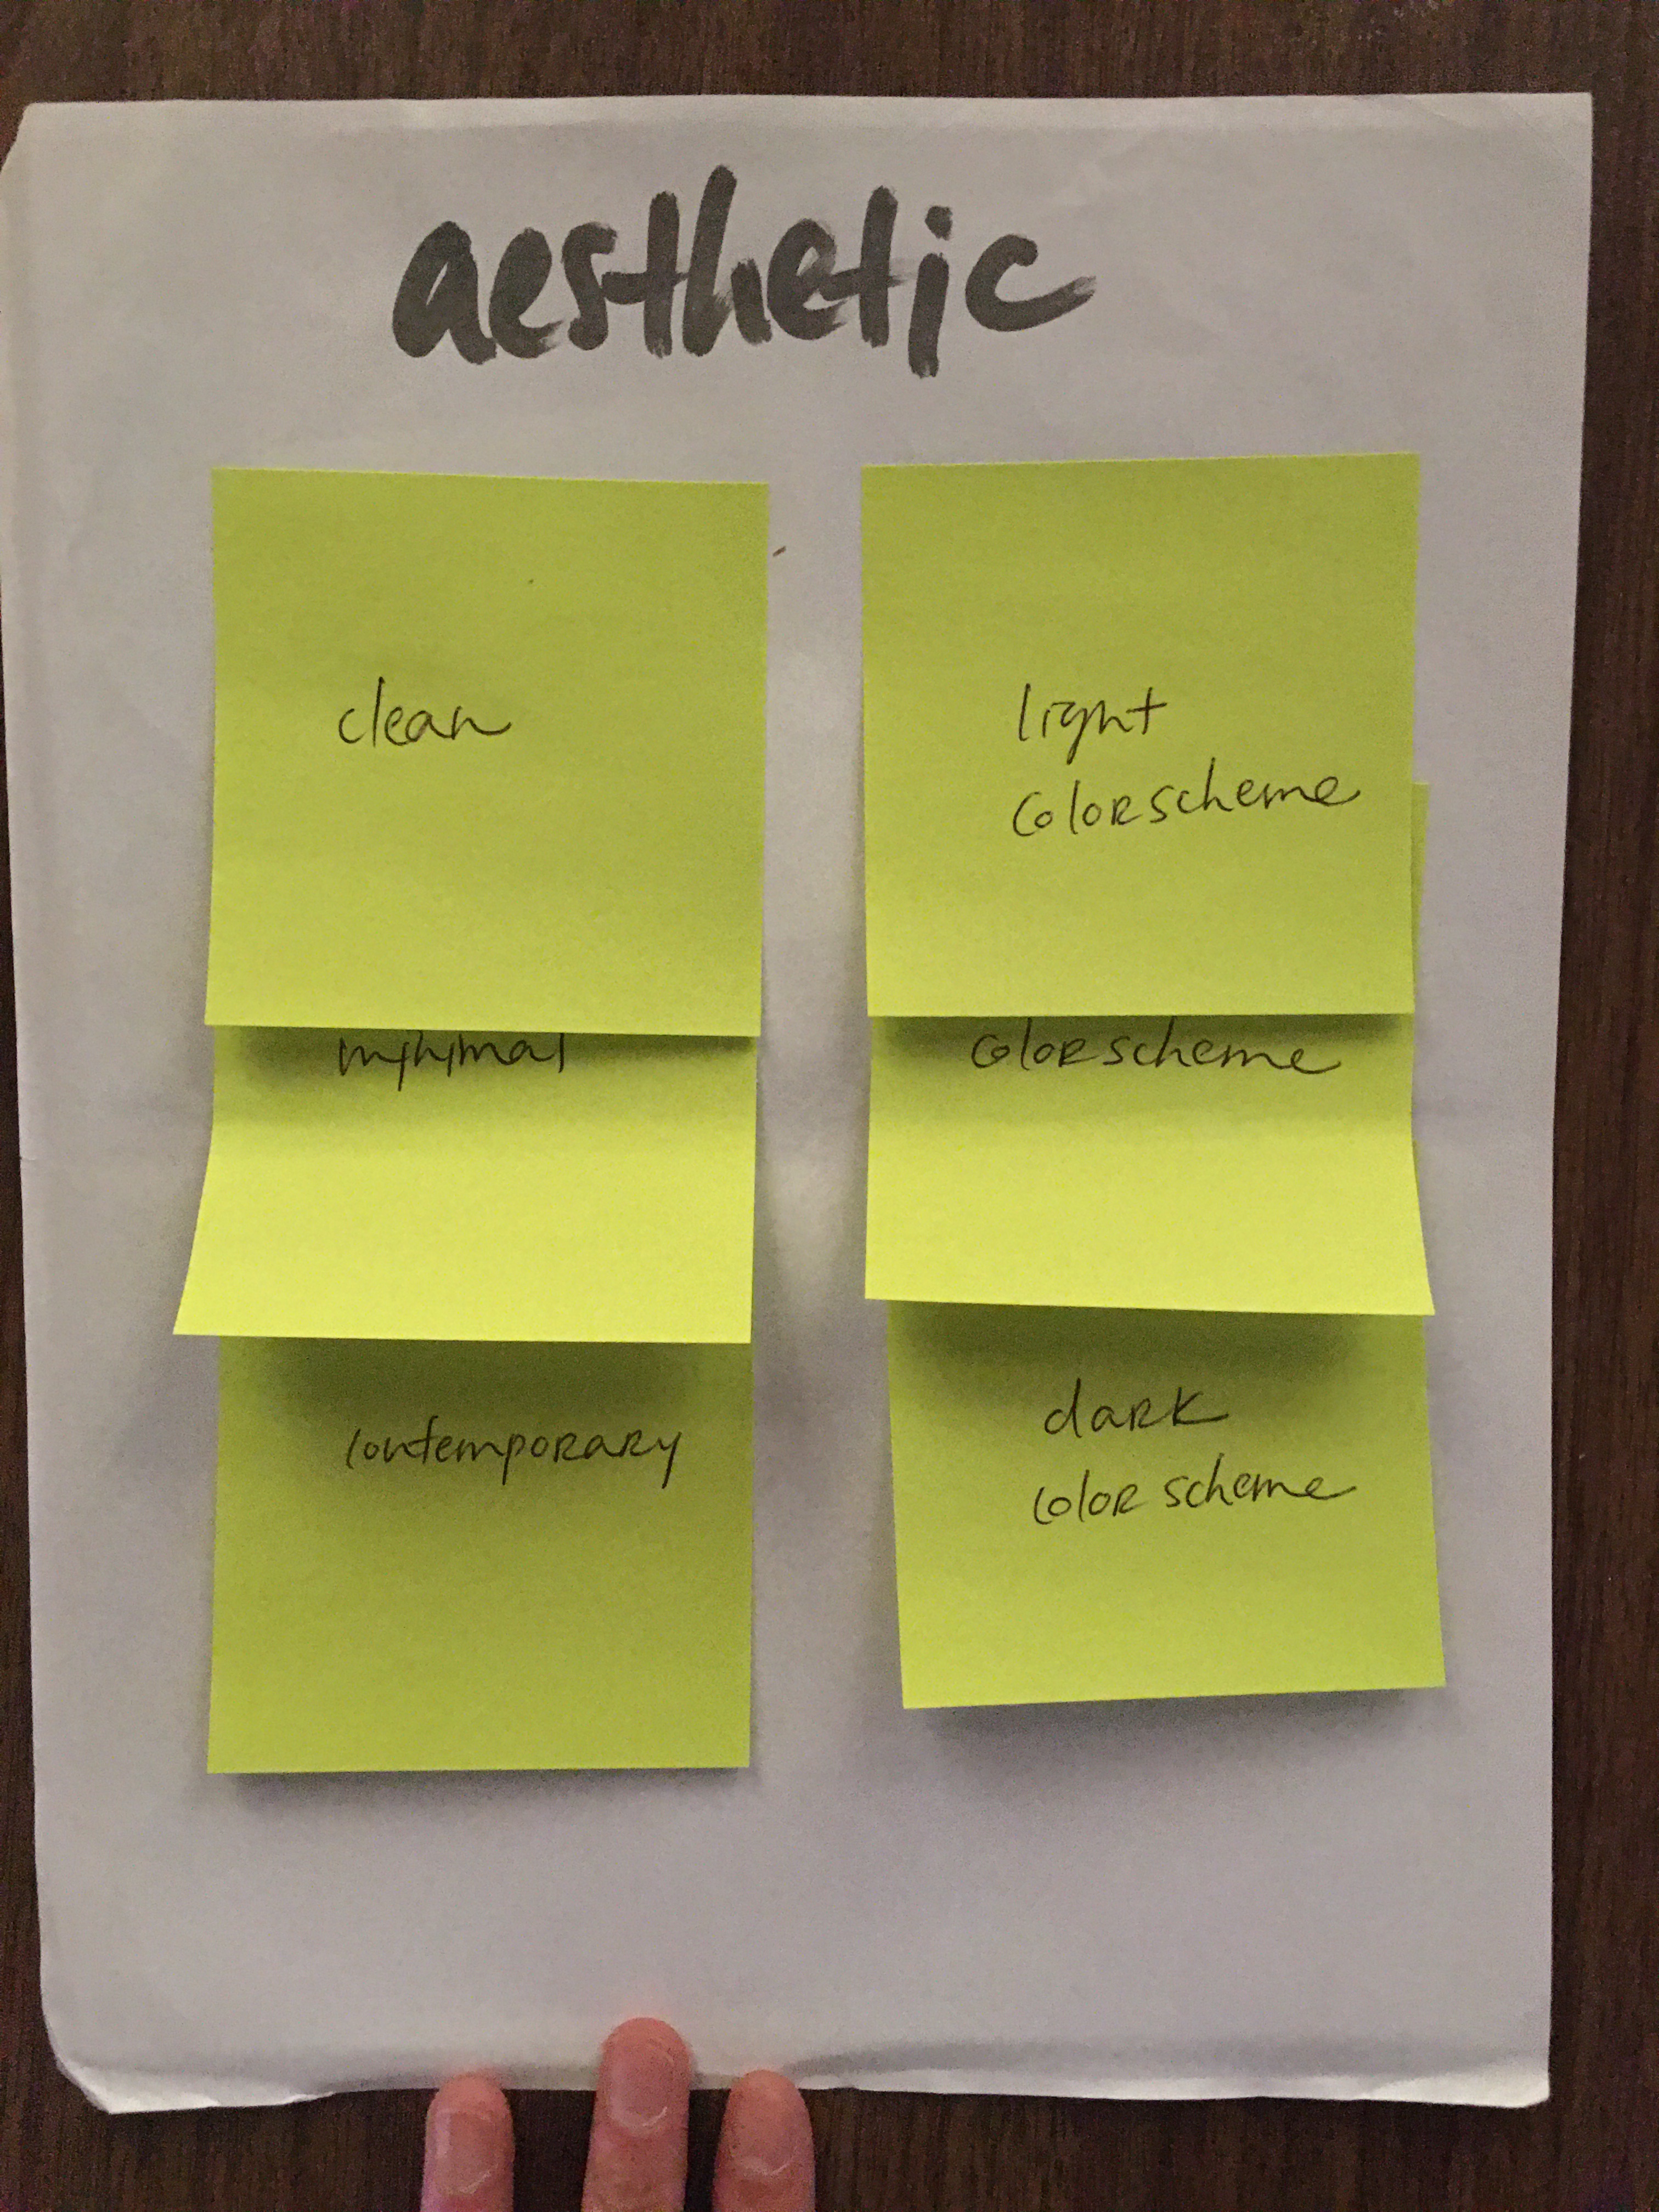 aesthetic
clean
minimal
contemporary
light
colorscheme
colorscheme
dark
color scheme